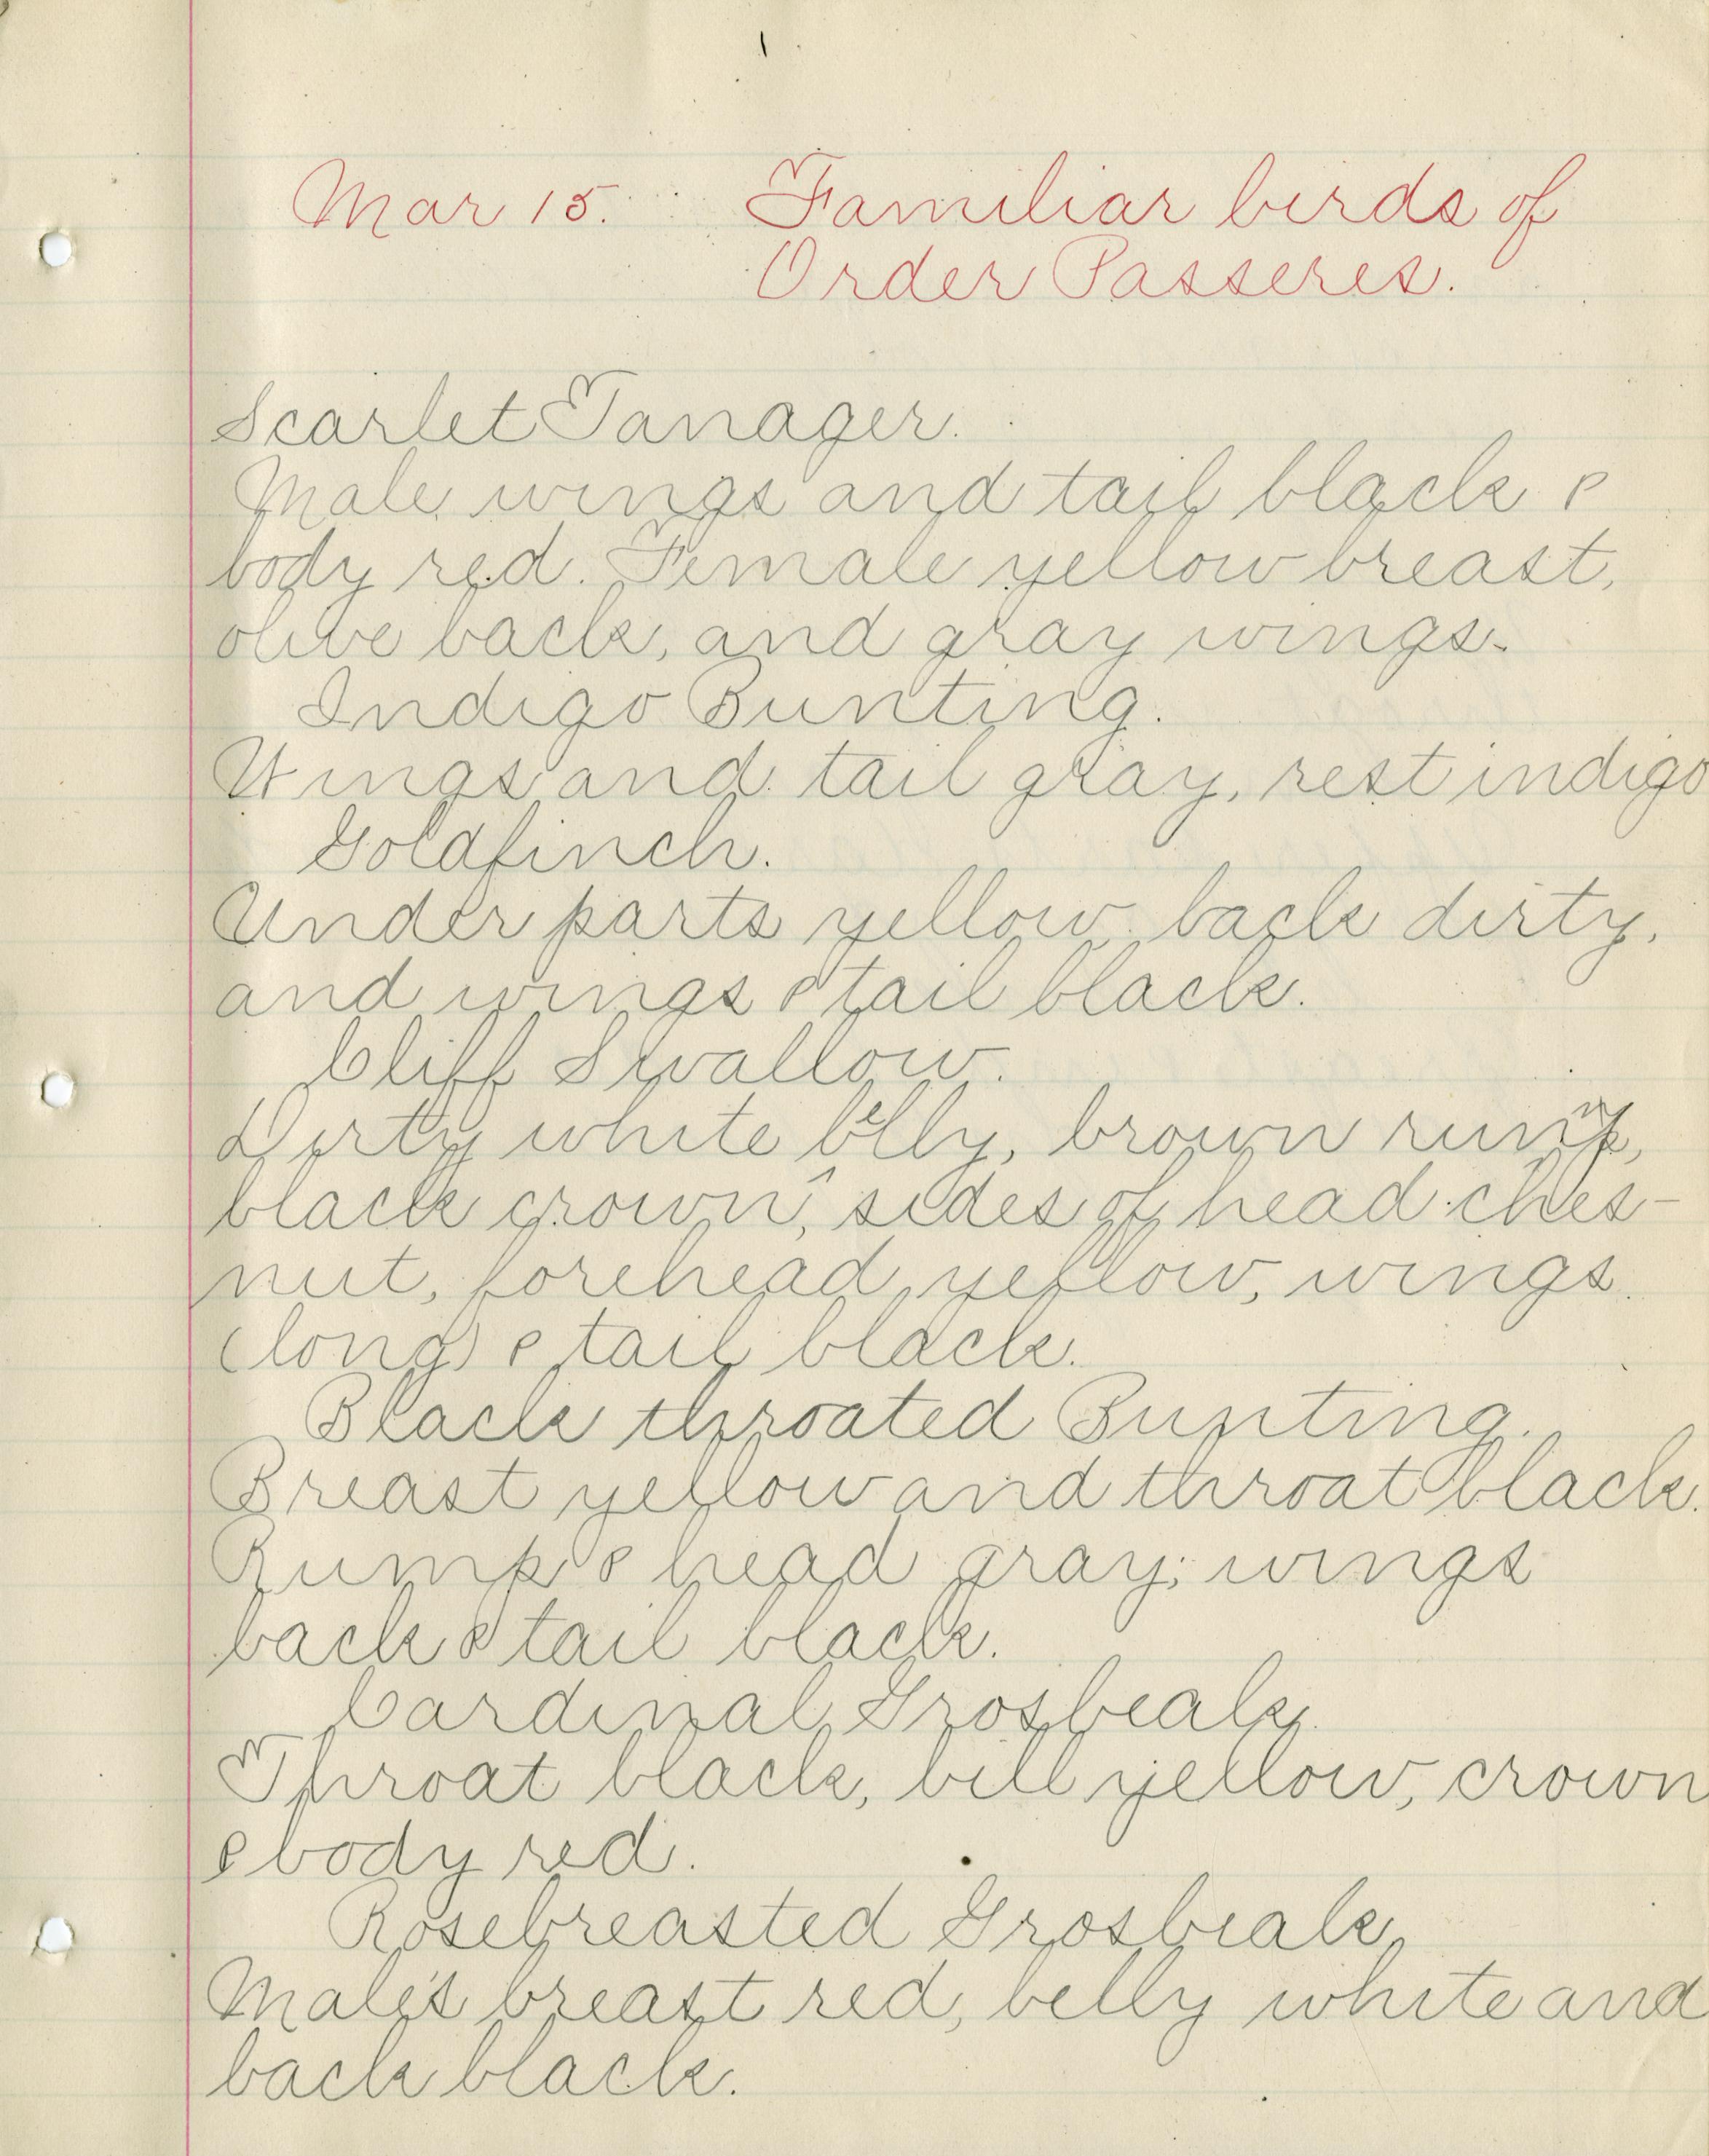 Mar 15. Familiar birds of
Order Passeres.
Scarlet Tanager.
Male wings and tail black &
body red. Female yellow breast,
olive back, and gray wings.
Indigo Bunting.
Wings and tail gray, rest indigo
Goldfinch.
Under parts yellow back dirty,
and wings & tail black.
Cliff Swallow.
Dirty white belly, brown rump,
black crown, sides of head ches-
nut, forehead yellow, wings
(long) & tail black.
Black throated Bunting.
Breast yellow and throat black.
Rump & head gray; wings
back & tail black.
Cardinal Grosbeak.
Throat black, bill yellow, crown
& body red.
Rosebreasted Grosbeak,
Male's breast red, belly white and
back black.